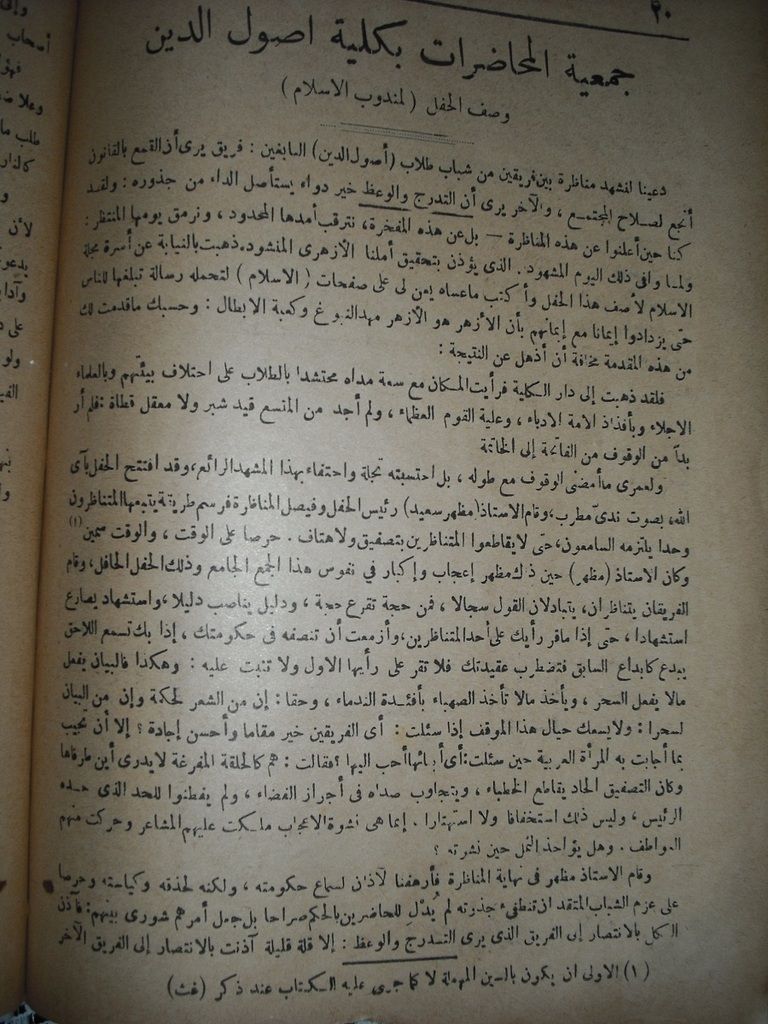 ٢٠
جمعية المحاضرات بكلية اصول الدين
وصف الحفل (لمندوب الاسلام)
دعينا لنشهد مناظرة بين فريقين من شباب طلاب (أصول الدين) النابغين : فريق يرى أن القمع بالقانون
أنجع لصلاح المجتمع ، والآخر يرى أن التدرج والوعظ خير دواء يستأصل الداء من جذوره : ولقد
كنا حين أعلنوا عن هذه المناظرة — بل عن هذه المفخرة، نترقب أمدها المحدود ، ونرمق يومها المنتظر :
ولما وافى ذلك اليوم المشهود . الذى يؤذن بتحقيق أملنا الأزهرى المنشود. ذهبت بالنيابة عن أسرة مجلة
الاسلام لأصف هذا الحفل وأكتب ماعساه يعن لى على صفحات (الاسلام) لتحمله رسالة تبلغها للناس
حتى يزدادوا إيمانا مع إيمانهم بأن الأزهر هو الأزهر مهد النبوغ وكعبة الابطال : وحسبك ماقدمت لك
من هذه المقدمة مخافة أن أذهل عن النتيجة :
فلقد ذهبت إلى دار الكلية فرأيت المكان مع سعة مداه محتشدا بالطلاب على اختلاف بيئتهم وبالعلماء
الاجلاء وبأفذاذ الامة الادباء ، وعلية القوم العظماء ، ولم أجد من المتسع قيد شبر ولا معقل قطاة فلم أر
بداً من الوقوف من الفاتحة إلى الخاتمة
ولعمرى ماأمضى الوقوف مع طوله ، بل احتسبته تجلة واحتفاء بهذا المشهد الرائع، وقد افتتح الحفل بآى
الله، بصوت ندىّ مطرب، وقام الاستاذ (مظهر سعيد) رئيس الحفل وفيصل المناظرة فرسم طريقة يتبعها المتناظرون
وحدا يلتزمه السامعون، حتى لايقاطعوا المتناظرين بتصفيق ولا هتاف . حرصا على الوقت ، والوقت سمين (١)
وكان الاستاذ (مظهر) حين ذلك مظهر إعجاب وإكبار في نفوس هذا الجمع الجامع وذلك الحفل الحافل، وقام
الفريقان يتناظران، يتبادلان القول سجالا ، فمن حجة تقرع حجة ، ودليل يناصب دليلا ،واستشهاد يصارع
استشهادا ، حتى إذا ماقر رأيك على أحد المتناظرين، وأزمعت أن تنصفه فى حكومتك ، إذا بك تسمع اللاحق
يبدع كابداع السابق فتضطرب عقيدتك فلا تقر على رأيها الاول ولا تثبت عليه : وهكذا فالبيان يفعل
مالا يفعل السحر ، ويأخذ مالا تأخذ الصهباء بأفئدة الندماء ، وحقا : إن من الشعر لحكمة وإن من البيان
لسحرا : ولايسعك حيال هذا الموقف إذا سئلت : أى الفريقين خير مقاما وأحسن إجادة ؟ إلا أن تجيب
بما أجابت به المرأة العربية حين سئلت: أى أبنائها أحب اليها ؟ فقالت : هم كالحلقة المفرغة لايدرى أين طرفاها
وكان التصفيق الحاد يقاطع الخطباء ، ويتجاوب صداه فى أجواز الفضاء ، ولم يفطنوا للحد الذى حده
الرئيس ، وليس ذلك استخفافا ولا استهتارا . إنما هى نشوة الاعجاب ملكت عليهم المشاعر وحركت منهم
العواطف . وهل يؤاخذ الثمل حين نشوته ؟
وقام الاستاذ مظهر فى نهاية المناظرة فأرهفنا لآذان لسماع حكومته ، ولكنه لحذقه وكياسته وحرصا
على عزم الشباب المتقد ان تنطفىء جذوته لم يُدْلِ للحاضرين بالحكم صراحا بل جعل أمرهم شورى بينهم: فآذن
الكل بالانتصار إلى الفريق الذى يرى التدرج والوعظ : إلا قلة قليلة آذنت بالانتصار إلى الفريق الآخر
(١) الاولى ان يكون بالسين المهملة لا كما جرى عليه الكتاب عند ذكر (غث)